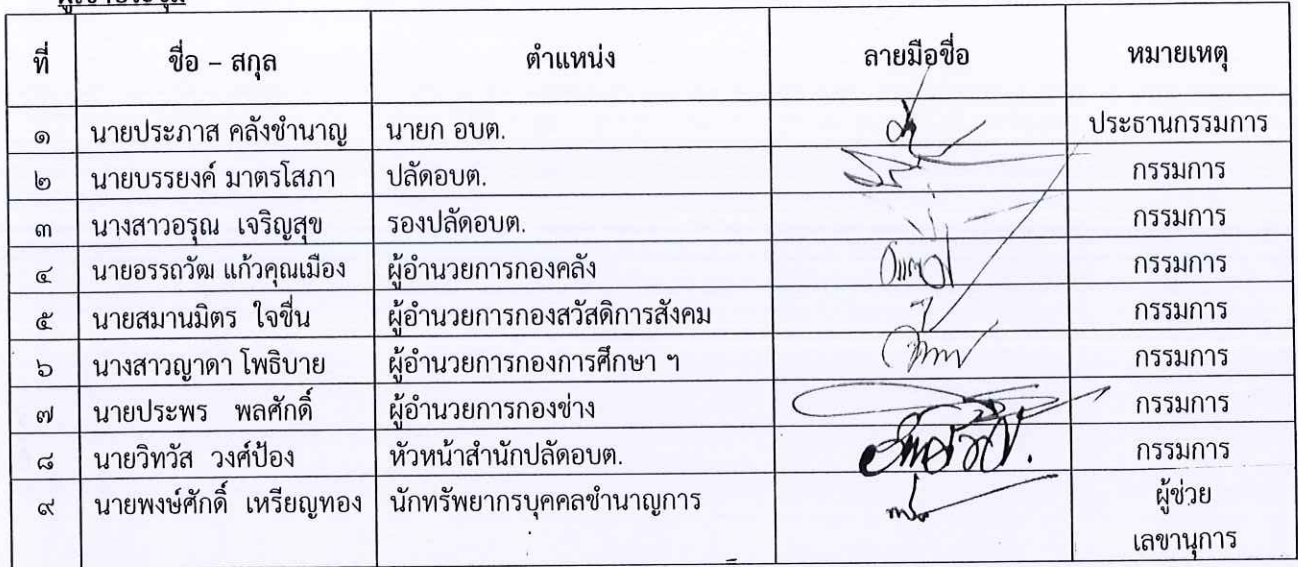 ผู้เข้าประชุม
ที่ ชื่อ – สกุล ตำแหน่ง ลายมือชื่อ หมายเหตุ
๑ นายประภาส คลังชำนาญ นายก อบต. ประธานกรรมการ
๒ นายบรรยงค์ มาตรโสภา ปลัดอบต. กรรมการ
๓ นางสาวอรุณ เจริญสุข รองปลัดอบต. กรรมการ
๔ นายอรรถวัฒ แก้วคุณเมือง ผู้อำนวยการกองคลัง กรรมการ
๕ นายสมานมิตร ใจชื่น ผู้อำนวยการกองสวัสดิการสังคม กรรมการ
๖ นางสาวญาดา โพธิบาย ผู้อำนวยการกองการศึกษา ฯ กรรมการ
๗ นายประพร พลศักดิ์ ผู้อำนวยการกองช่าง กรรมการ
๘ นายวิทวัส วงศ์ป้อง หัวหน้าสำนักปลัดอบต. กรรมการ
๙ นายพงษ์ศักดิ์ เหรียญทอง นักทรัพยากรบุคคลชำนาญการ ผู้ช่วย
เลขานุการ